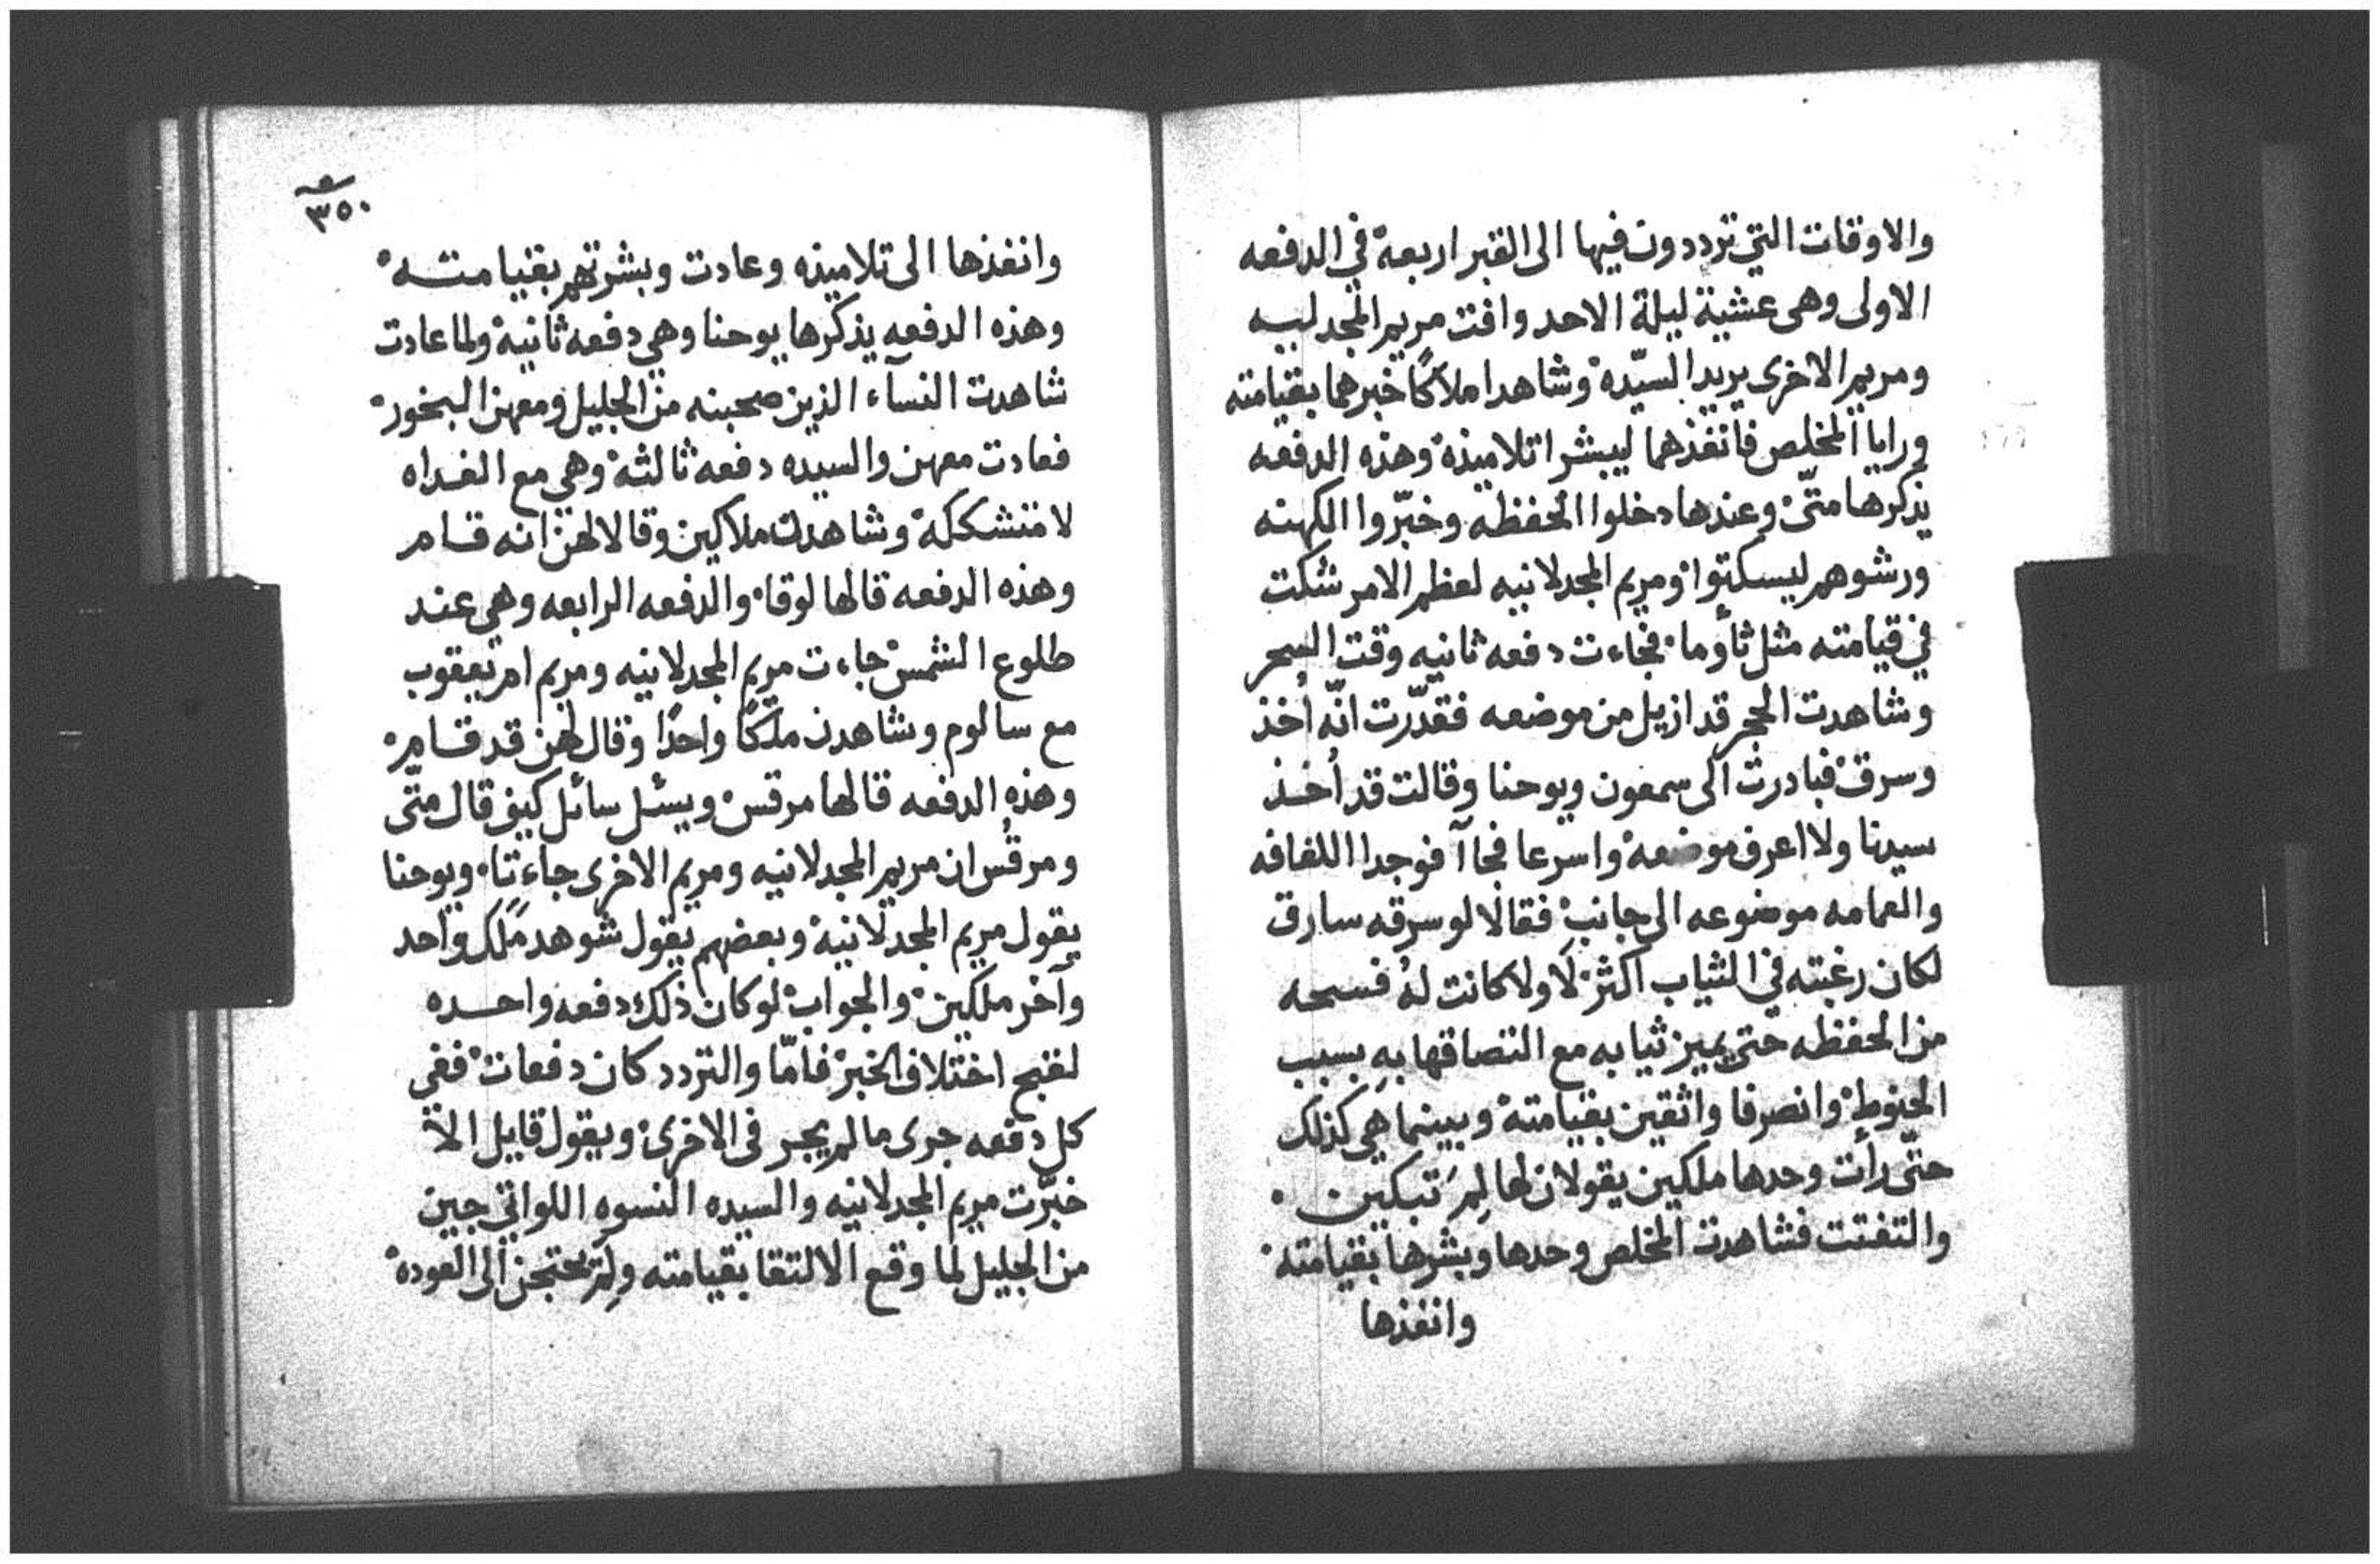 والاوقات التي ترددون فيها الى القبر اربعة في الدفعه
الاولى وهى عشية ليلة الاحد وافت مريم المجدليه
ومريم الاخرى يريد السيّدة وشاهدا ملاكًا خبرهما بقيامته
ورايا المخلص فانفذهما ليبشرا تلاميذه وهذه الدفعه
يذكرها متّى وعندها دخلوا الحفظه وخبّروا الكهنه
ورشوهم ليسكتوا ومريم المجدلانيه لعظم الامر شكت
في قيامته مثل ثأوما فجاءت دفعه ثانيه وقت السحر
وشاهدت الحجر قد ازيل من موضعه فقدّرت انّه أخذ
وسرق فبادرت الى سمعون ويوحنا وقالت قد أخذ
سيدنا ولا اعرف موضعه واسرعا فجاآ فوجدا اللفافه
والعمامه موضوعه الى جانب فقالا لو سرقه سارق
لكان رغبته في الثياب اكثر لا ولا كانت له فسحه
من الحفظه حتى يميز ثيابه مع التصاقها به بسبب
الحنوط وانصرفا واثقين بقيامته وبينما هي كذلك
حتّى رأت وحدها ملكين يقولان لها لِمَ تبكين
والتفتت فشاهدت المخلص وحدها وبشرها بقيامته
وانفذها
٣٥٠
وانفذها الى تلاميذه وعادت وبشرتهم بقيامته
وهذه الدفعه يذكرها يوحنا وهي دفعه ثانية ولما عادت
شاهدت النسآء الذين صحبنه من الجليل ومعهن البخور
فعادت معهن والسيده دفعه ثالثة وهي مع الغداه
لا متشككة وشاهدت ملاكين وقالا لهن انه قام
وهذه الدفعه قالها لوقا والدفعه الرابعه وهي عند
طلوع الشمس جاءت مريم المجدلانيه ومريم ام يعقوب
مع سالوم وشاهدن ملكًا واحدًا وقال لهن قد قام
وهذه الدفعه قالها مرقس ويسئل سائل كيف قال متّى
ومرقُس ان مريم المجدلانيه ومريم الاخرى جاءتا ويوحنا
يقول مريم المجدلانية وبعضهم يقول شوهد ملك واحد
وآخر ملكين والجواب لو كان ذلك دفعه واحده
لقبح اختلاف الخبر فامّا والتردد كان دفعات ففي
كل دفعه جرى ما لم يجر فى الاخرى ويقول قايل الّا
خبّرت مريم المجدلانيه والسيده النسوه اللواتي جين
من الجليل لما وقع الالتقا بقيامته ولم يحتجن الى العوده